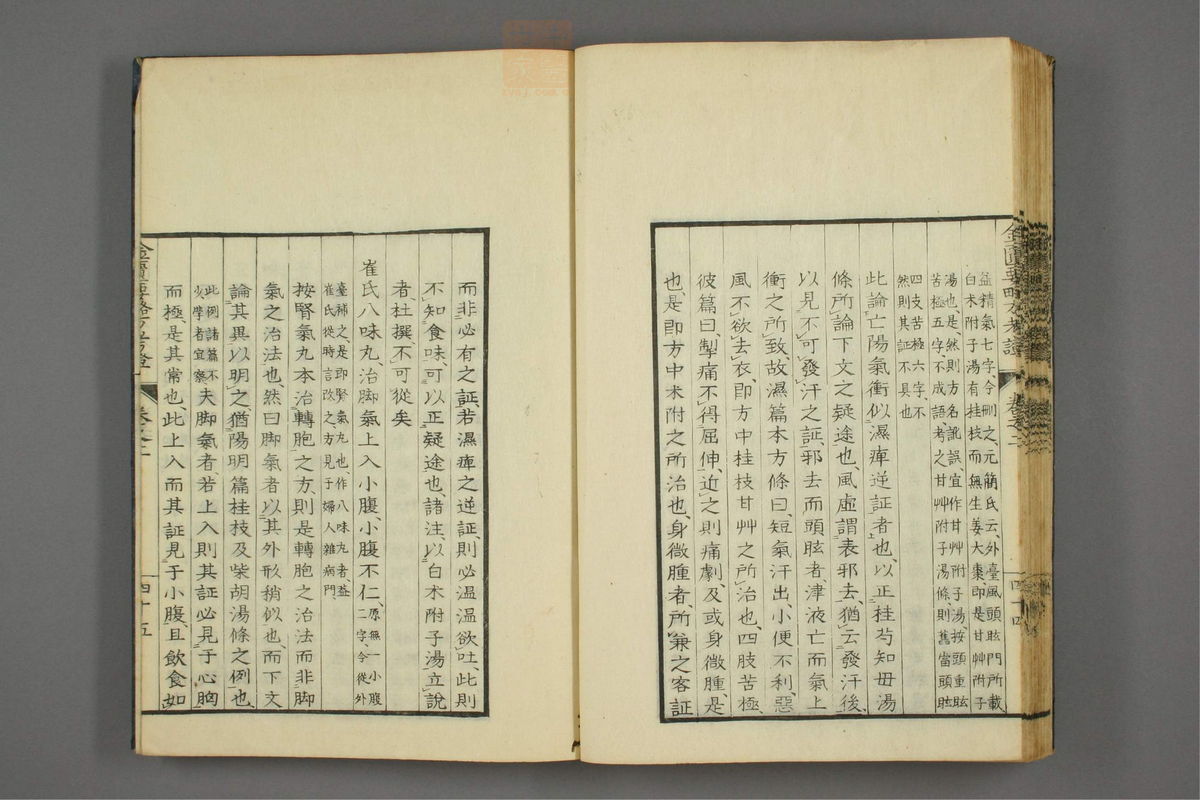 益精氣七字、今刪之、元簡氏云、外臺風頭眩門所載、
白朮附子湯有桂枝而無生姜大棗、即是甘艸附子
湯也、是、然則方名訛誤、宜作甘艸附子湯、按頭重眩
苦極五字、不成語、考之甘艸附子湯條、則舊當頭眩
四支苦極六字、不
然則其証不具也
此論亡陽氣衝似濕痺逆証者也、以正桂芍知毋湯
條所論下文之疑途也、風虛謂表邪去、猶云發汗後、
以見不可發汗之証、邪去而頭眩者、津液亡而氣上
衝之所致、故濕篇本方條曰、短氣汗出、小便不利、惡
風不欲去衣、即方中桂枝甘艸之所治也、四肢苦極、
彼篇曰、掣痛不得屈伸、近之則痛劇、及或身微腫、是
也、是即方中朮附之所治也、身微腫者、所兼之客証
四十四
而非必有之証、若濕痺之逆証、則必温温欲吐、此則
不知食味、可以正疑途也、諸注、以白朮附子湯立說
者、杜撰不可從矣
崔氏八味丸、治脚氣上入小腹、小腹不仁、原無一小腹
二字、今從外
臺補之、是即腎氣丸也、作八味丸者、盖
崔氏從時言改之、方見于婦人雜病門、
按腎氣丸本治轉胞之方、則是轉胞之治法而非脚
氣之治法也、然曰脚氣者、以其外形稍似也、而下文
論其異以明之、猶陽明篇桂枝及柴胡湯條之例也、
此例諸篇不
少、學者宜察、夫脚氣者、若上入則其証必見于心胸
而極、是其常也、此上入而其証見于小腹、且飲食如
金匱要略方考證
卷之二
四十五